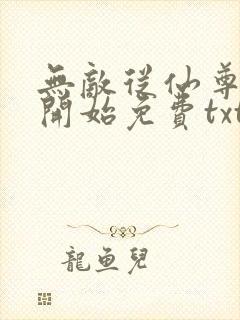 無敵從仙尊
開始免費txt
龍魚兒